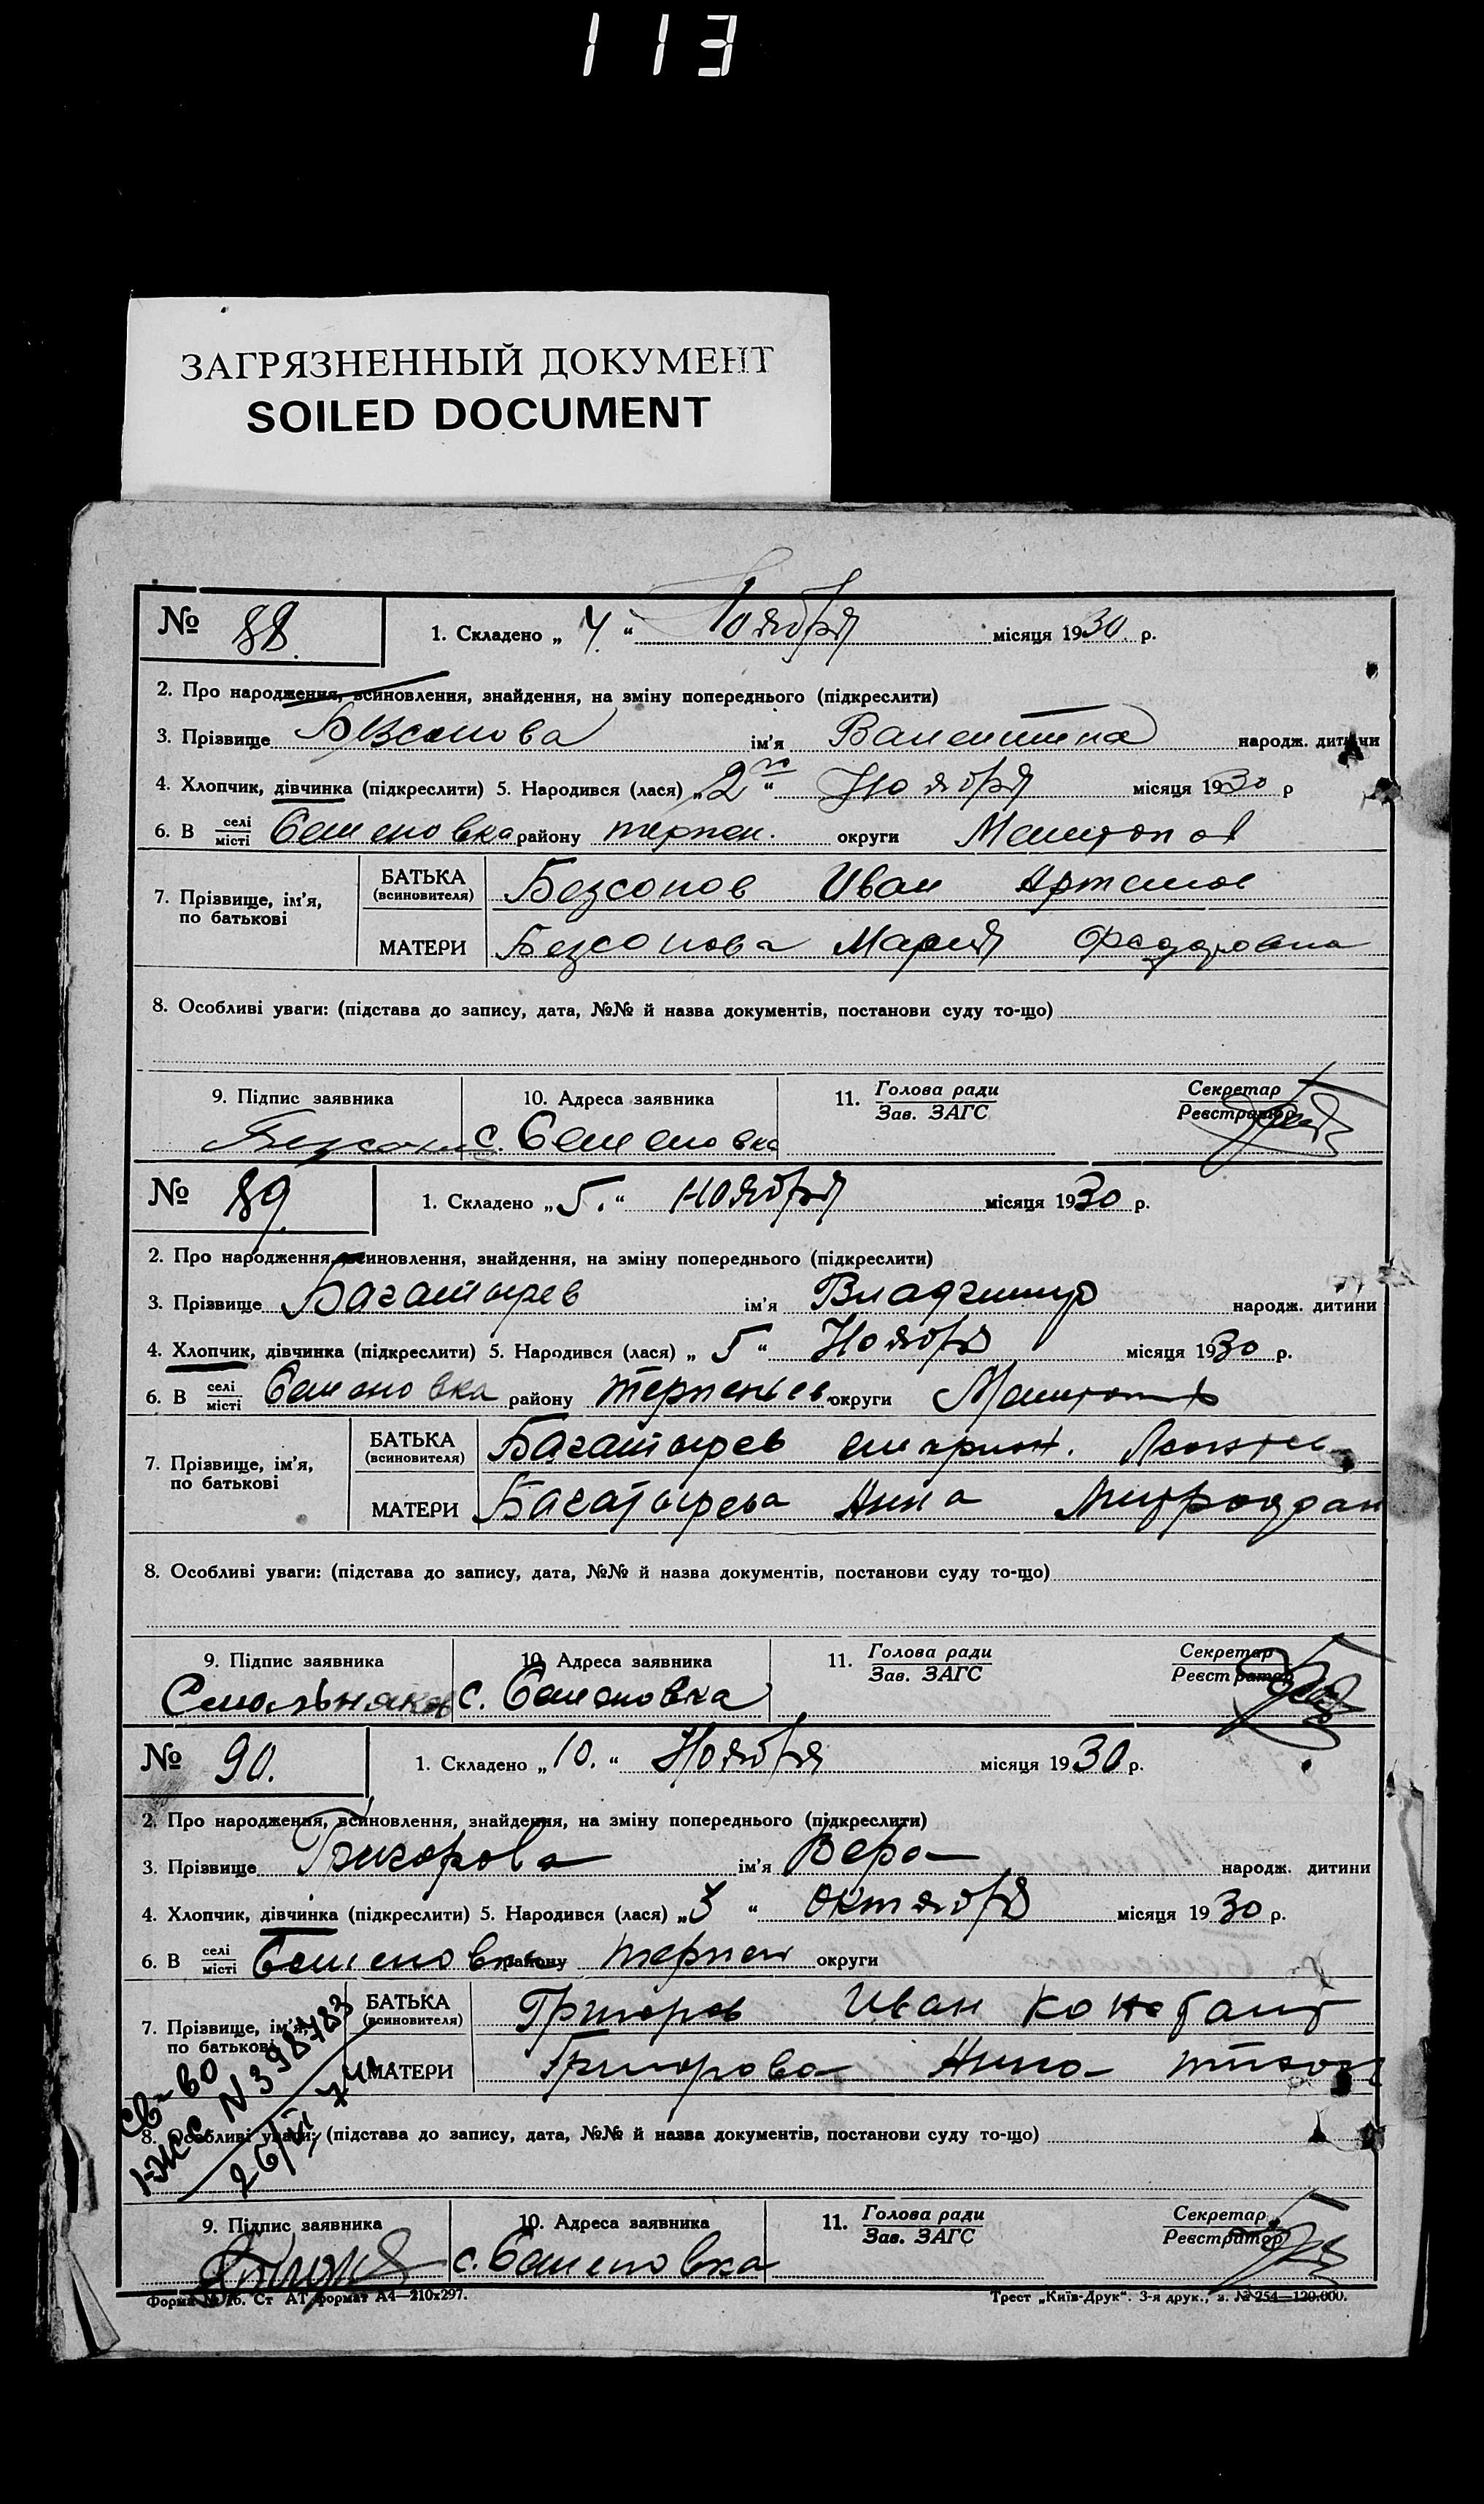 113
ЗАГРЯЗНЕННЫЙ ДОКУМЕНТ
SOILED DOCUMENT
№ 88. 1. Складено „ 4. “ Ноября місяця 1930. р.
2. Про народження, всиновлення, знайдення, на зміну попереднього (підкреслити)
3. Прізвище Безсонова ім'я Валентина народж. дитини
4. Хлопчик, дівчинка (підкреслити) 5. Народився (лася) „ 2 “ Ноября місяця 1930 р
6. В селі/місті Семеновка району терпен. округи Мелитоп
7. Прізвище, ім'я, по батькові
БАТЬКА (всиновителя) Безсонов Иван Артемов
МАТЕРИ Безсонова Мария Федоровна
8. Особливі уваги: (підстава до запису, дата, №№ й назва документів, постанови суду то-що)
9. Підпис заявника 10. Адреса заявника 11. Голова ради/Зав. ЗАГС Секретар/Реєстратор
с. Семеновка
№ 89. 1. Складено „ 5. “ ноября місяця 1930 р.
2. Про народження, всиновлення, знайдення, на зміну попереднього (підкреслити)
3. Прізвище Багатырев ім'я Владимир народж. дитини
4. Хлопчик, дівчинка (підкреслити) 5. Народився (лася) „ 5 “ Ноября місяця 1930 р.
6. В селі/місті Семеновка району Терпеньев округи
7. Прізвище, ім'я, по батькові
БАТЬКА (всиновителя) Багатырев
МАТЕРИ Багатырева Анна
8. Особливі уваги: (підстава до запису, дата, №№ й назва документів, постанови суду то-що)
9. Підпис заявника 10. Адреса заявника 11. Голова ради/Зав. ЗАГС Секретар/Реєстратор
с. Семеновка
№ 90. 1. Складено „ 10. “ Ноября місяця 1930 р.
2. Про народження, всиновлення, знайдення, на зміну попереднього (підкреслити)
3. Прізвище Григорова ім'я Вера народж. дитини
4. Хлопчик, дівчинка (підкреслити) 5. Народився (лася) „ 3 “ октября місяця 1930 р.
6. В селі/місті Семеновка району терпен округи
7. Прізвище, ім'я, по батькові
БАТЬКА (всиновителя) Григоров Иван Констант
МАТЕРИ Григорова Анна
Св-во
N 398783
26/VI
8. Особливі уваги: (підстава до запису, дата, №№ й назва документів, постанови суду то-що)
9. Підпис заявника 10. Адреса заявника 11. Голова ради/Зав. ЗАГС Секретар/Реєстратор
с. Семеновка
Форма № 26. Ст АТ формат А4—210х297. Трест „Київ-Друк“. 3-я друк., з. № 254—120.000.